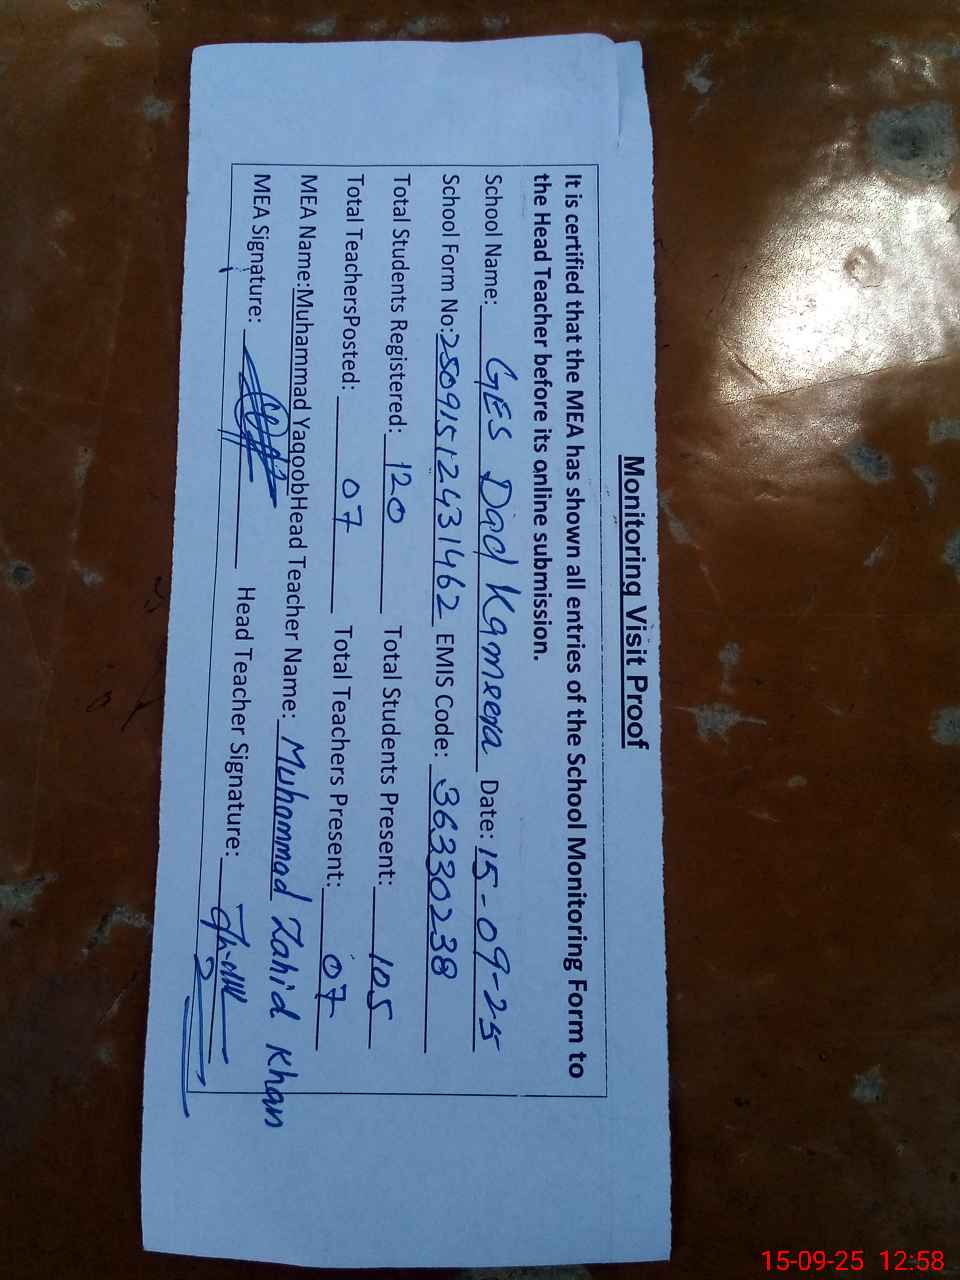 Monitoring Visit Proof
It is certified that the MEA has shown all entries of the School Monitoring Form to
the Head Teacher before its online submission.
School Name: GES Dad Kameera Date: 15-09-25
School Form No:25091512431462 EMIS Code: 36330238
Total Students Registered: 120 Total Students Present: 105
Total TeachersPosted: 07 Total Teachers Present: 07
MEA Name:Muhammad YaqoobHead Teacher Name: Muhammad Zahid Khan
MEA Signature: Head Teacher Signature:
15-09-25 12:58